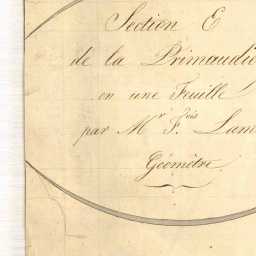 Section E
de la Primaudiè
en une Feuille
par Mr. Fois Lam
Géomètre.